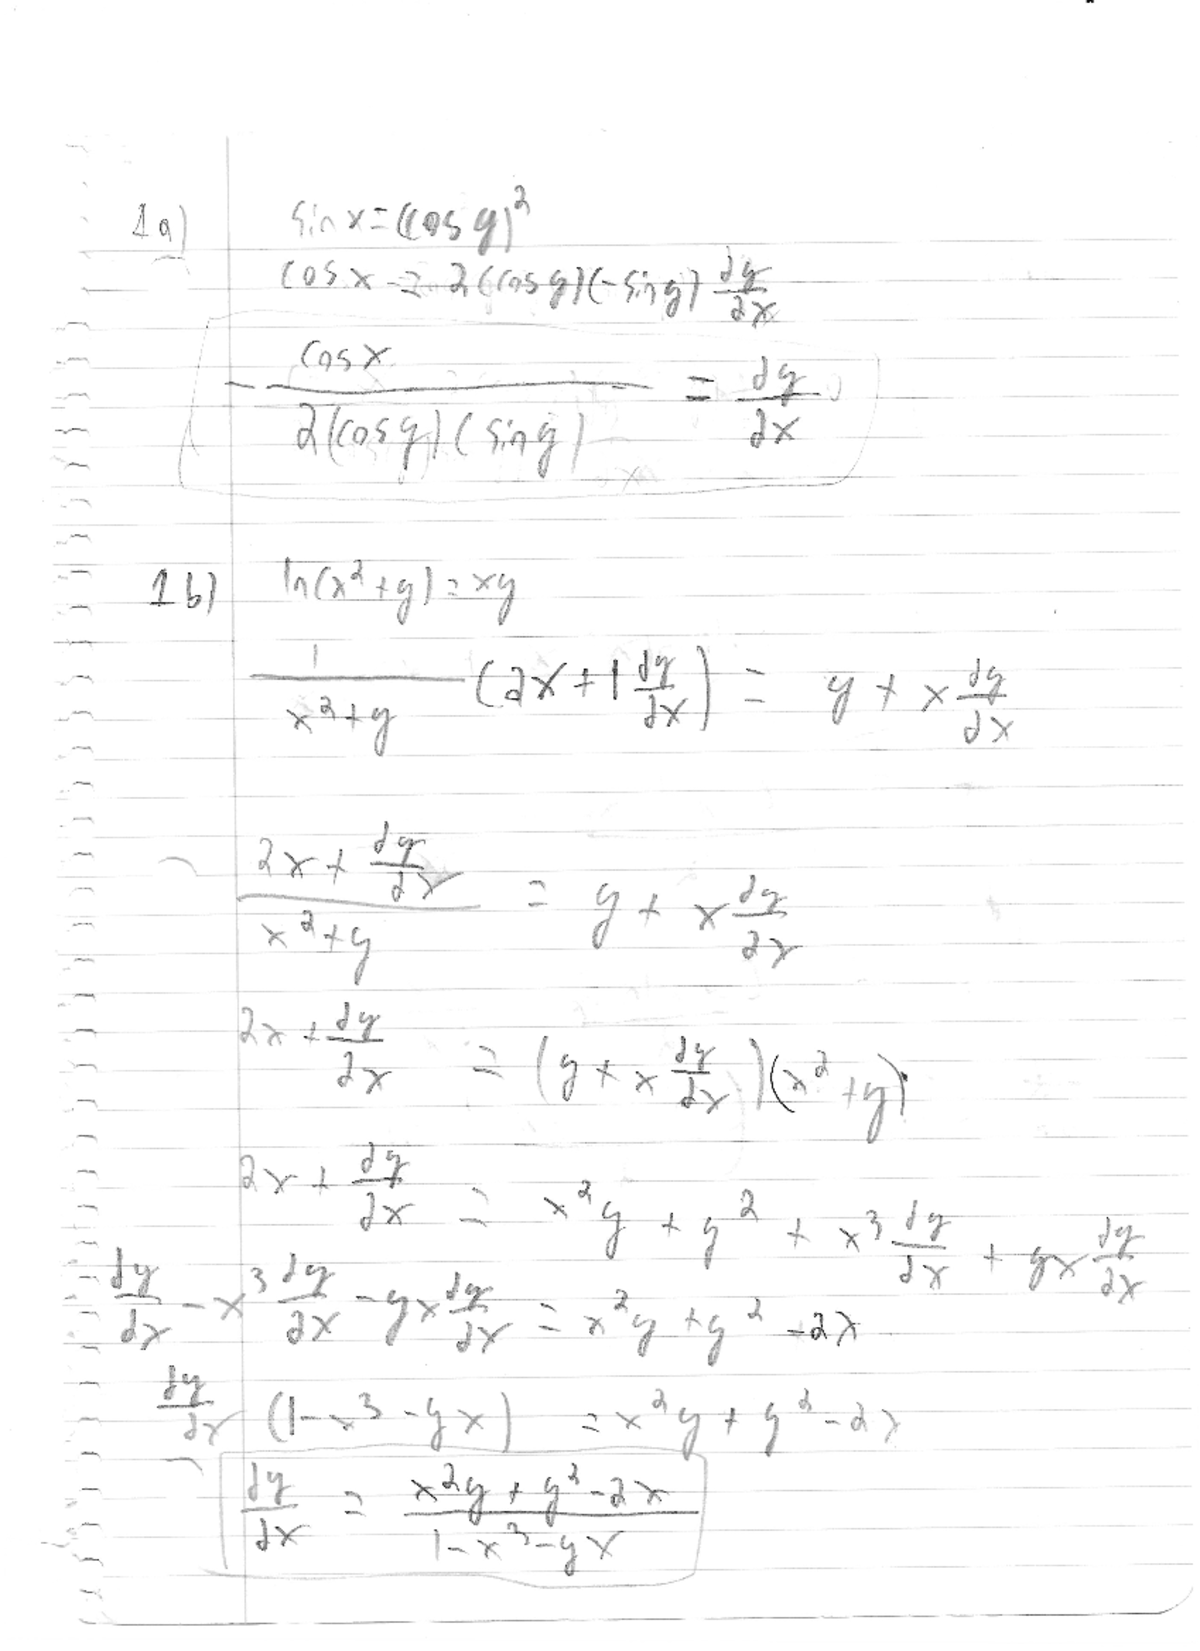 1a) sin x = (cos y)²
cos x = 2(cos y)(-sin y) dy/dx
- cos x / 2(cos y)(sin y) = dy/dx
1b) ln(x²+y) = xy
1/(x²+y) (2x + 1 dy/dx) = y + x dy/dx
(2x + dy/dx)/(x²+y) = y + x dy/dx
2x + dy/dx = (y + x dy/dx)(x²+y)
2x + dy/dx = x²y + y² + x³ dy/dx + yx dy/dx
dy/dx - x³ dy/dx - yx dy/dx = x²y + y² - 2x
dy/dx (1 - x³ - yx) = x²y + y² - 2x
dy/dx = (x²y + y² - 2x)/(1 - x³ - yx)